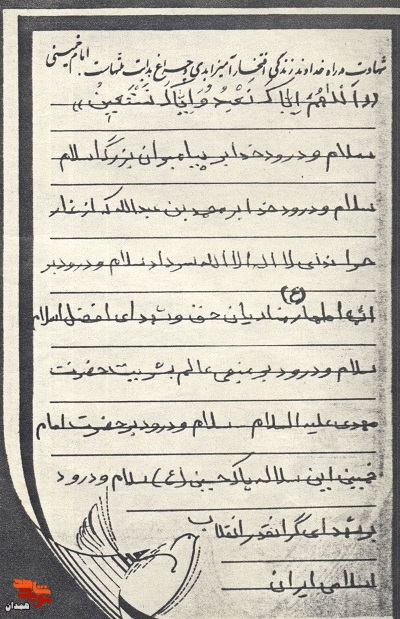 شهادت در راه خداوند زندگی افتخارآمیز ابدی و چراغ هدایت ملتهاست. امام خمینی
((اللهم ایاک نعبد و ایاک نستعین))
سلام و درود خدا بر پیامبران بزرگ اسلام
سلام و درود خدا بر محمد بن عبدالله که از غار
حرا ندای لا اله الا الله سرداد سلام و درود بر
ائمه اطهار (ع) منادیان حق و شهدای افضل اسلام
سلام و درود بر منجی عالم بشریت حضرت
مهدی علیه السلام سلام و درود بر حضرت امام
خمینی این سلاله پاک حسینی (ع) سلام و درود
بر شهدای گرانقدر انقلاب
اسلامی ایران
همدان